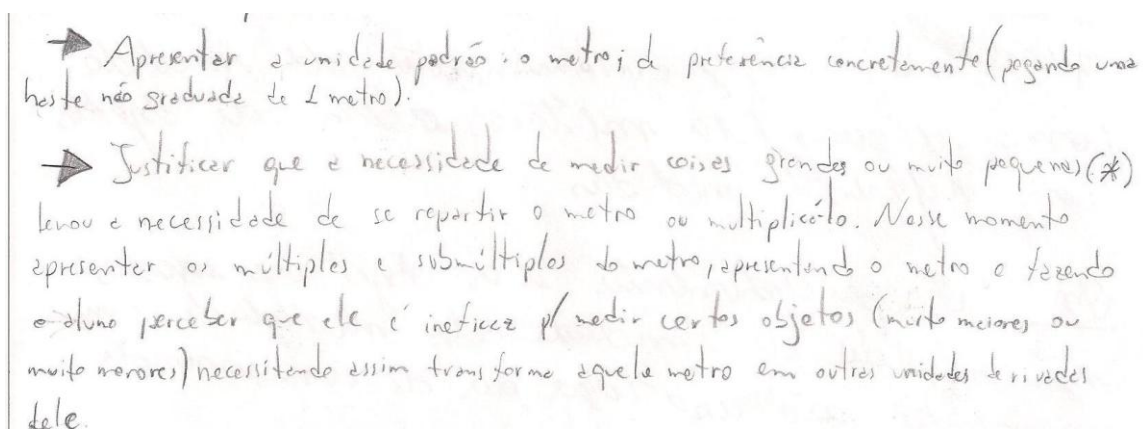 → Apresentar a unidade padrão: o metro; de preferência concretamente (pegando uma
haste não graduada de 1 metro).
→ Justificar que a necessidade de medir coisas grandes ou muito pequenas (*)
levou a necessidade de se repartir o metro ou multiplicá-lo. Nesse momento
apresentar os múltiplos e submúltiplos do metro, apresentando o metro e fazendo
o aluno perceber que ele é ineficaz p/ medir certos objetos (muito maiores ou
muito menores) necessitando assim transforma aquele metro em outras unidades derivadas
dele.